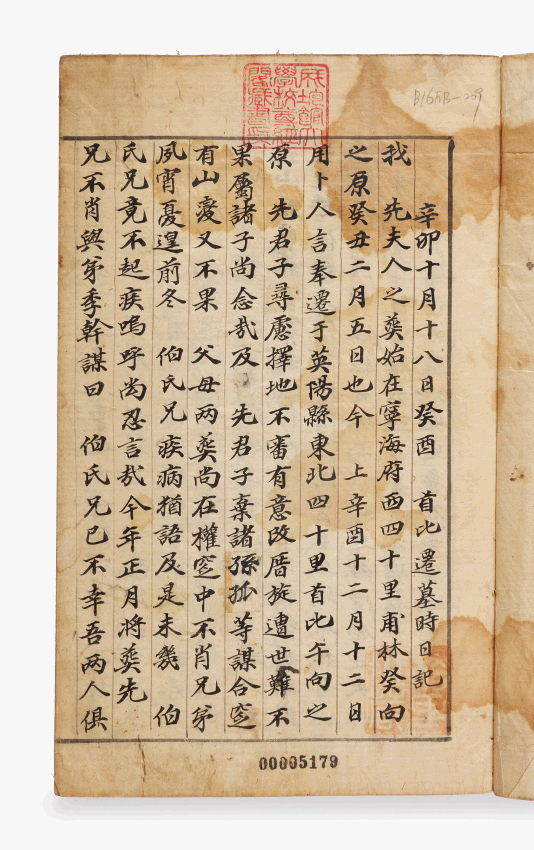 辛卯十月十八日癸酉 首比遷墓時日記
我 先夫人之葬始在寧海府西四十里甫林癸向
之原癸丑二月五日也今 上辛酉十二月十二日
用卜人言奉遷于英陽縣東北四十里首比午向之
原 先君子尋慮擇地不審有意改厝旋遭世難不
果屬諸子尚念哉及 先君子棄諸孤 等謀合窆
有山憂又不果 父母两葬尚在權窆中不肖兄弟
夙宵憂遑前冬 伯氏兄疾病猶語及是未幾 伯
氏兄竟不起疾嗚呼尚忍言哉今年正月將葬先
兄不肖與弟季幹謀曰 伯氏兄已不幸吾两人俱
00005179